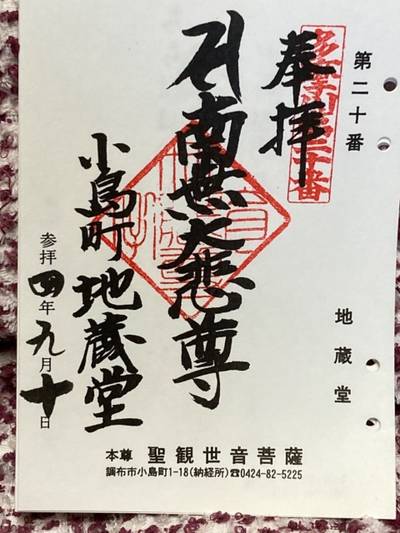 第二十番
地蔵堂
奉拝
南無大悲尊
小島町地蔵堂
参拝四年九月十日
本尊 聖観世音菩薩
調布市小島町1-18(納経所)☎0424-82-5225